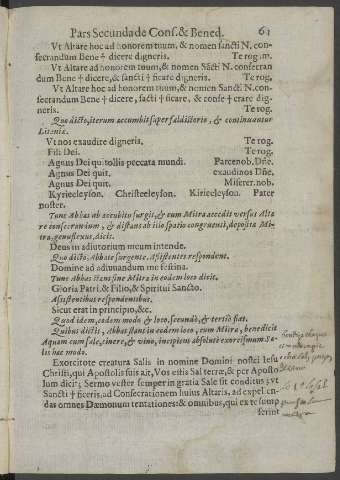 Pars Secunda de Cons. & Bened. 61
Vt Altare hoc ad honorem tuum, & nomen sancti N. con-
secrandum Bene † dicere digneris. Te rog.m.
Vt Altare ad honorem tuum, & nomen Sācti N. consecran
dum Bene † dicere, & sancti † ficare digneris. Te rog,
Vt Altare hoc ad honorem tuum, & nomen Sancti N. con-
secrandum Bene † dicere, sācti † ficare, & conse † crare dig-
neris. Te rog,
Quo dicto, iterum accumbit super faldistorio, & continuantur
Litaniæ.
Vt nos exaudire digneris, Te rog.
Fili Dei. Te rog.
Agnus Dei qui tollis peccata mundi. Parce nob. Dñe.
Agnus Dei quit. exaudi nos Dñe.
Agnus Dei quit. Miserer. nob.
Kyrieeleyson. Christeeleyson. Kirieeleyson. Pater
noster.
Tunc Abbas ab accubitu surgit, & cum Mitra accedit versus Alta
re consecrandum, & distans ab illo spatio congruenti, deposita Mi-
tra, genuflexus, dicit.
Deus in adiutorium meum intende.
Quo dicto, Abbate surgente, Assistentes respondent.
Domine ad adiuuandum me festina.
Tunc Abbas stans sine Mitra in eodem loco dicit.
Gloria Patri, & Filio, & Spiritui Sancto.
Assistentibus respondentibus,
Sicut erat in principio, &c.
Quod idem, eodem modo & loco, secundò, & tertiò fiat.
Quibus dictis, Abbas stans in eodem loco, cum Mitra, benedicit
Aquam cum sale, cinere, & vino, incipiens absolutè exorcismum Sa-
lis hoc modo.
Exorcizote creatura Salis in nomine Domini nostri Iesu
Christi, qui Apostolis suis ait, Vos estis Sal terræ, & per Aposto
lum dicit; Sermo vester semper in gratia Sale sit conditus; vt
Sancti † ficeris, ad Consecrationem huius Altaris, ad expellen-
das omnes Dæmonum tentationes: & omnibus, qui ex te sump
serint